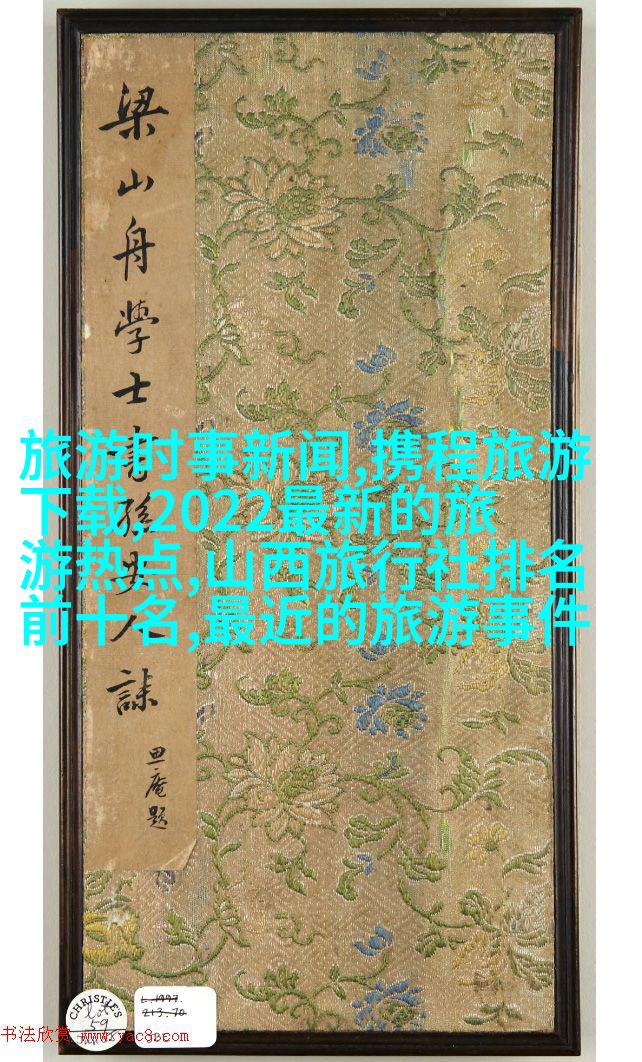 梁山舟學士書孫安人誄
庵題
旅游时事新闻,携程旅游
下载,2022最新的旅
游热点,山西旅行社排名
前十名,最近的旅游事件
CHRISTIE'S
Lot
59
L.1997.
213.70
书法欣赏 www.yac8.com